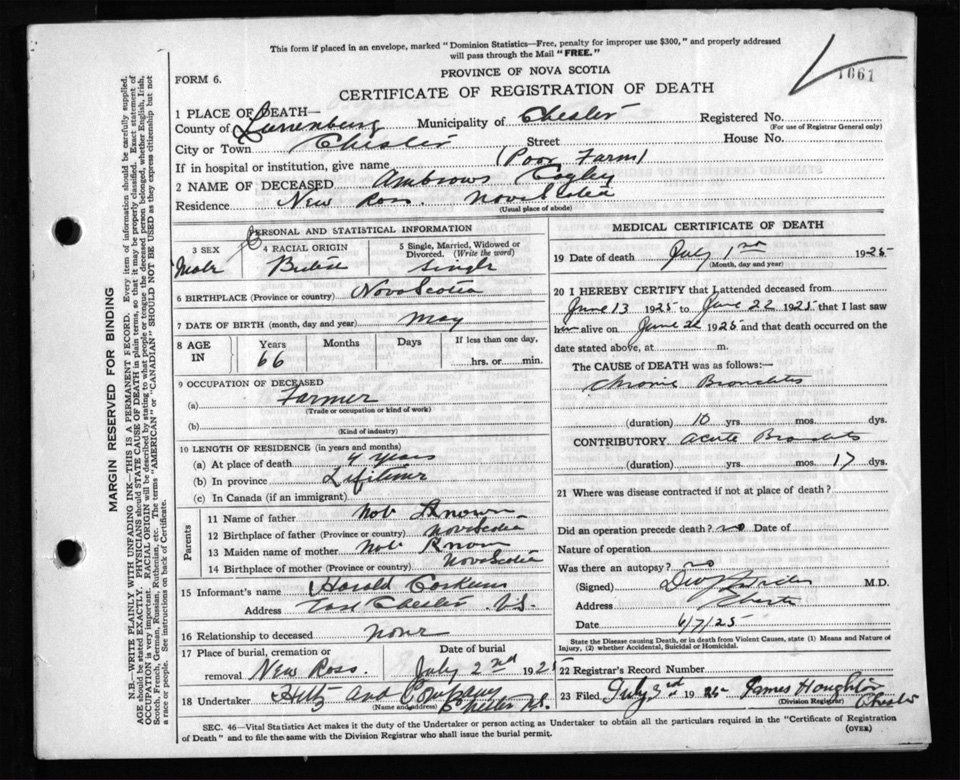 This form if placed in an envelope, marked "Dominion Statistics—Free, penalty for improper use $300," and properly addressed
will pass through the Mail "FREE."
1661
PROVINCE OF NOVA SCOTIA
FORM 6.
CERTIFICATE OF REGISTRATION OF DEATH
1 PLACE OF DEATH—
County of Lunenburg Municipality of Chester Registered No.
(For use of Registrar General only)
City or Town Chester Street House No.
If in hospital or institution, give name (Poor Farm)
2 NAME OF DECEASED Ambrows
Residence New Ross Nova Scotia
(Usual place of abode)
PERSONAL AND STATISTICAL INFORMATION
3 SEX 4 RACIAL ORIGIN 5 Single, Married, Widowed or
Divorced. (Write the word)
Male British Single
6 BIRTHPLACE (Province or country) Nova Scotia
7 DATE OF BIRTH (month, day and year) May
8 AGE IN Years Months Days If less than one day,
66 hrs. or min.
9 OCCUPATION OF DECEASED
(a) Farmer
(Trade or occupation or kind of work)
(b)
(Kind of industry)
10 LENGTH OF RESIDENCE (in years and months)
(a) At place of death 4 years
(b) In province Lifetime
(c) In Canada (if an immigrant)
Parents
11 Name of father Not Known
12 Birthplace of father (Province or country) Nova Scotia
13 Maiden name of mother Not Known
14 Birthplace of mother (Province or country) Nova Scotia
15 Informant's name Harold Corkum
Address East Chester N.S.
16 Relationship to deceased None
17 Place of burial, cremation or Date of burial
removal New Ross. July 2nd 1925
18 Undertaker Hiltz and Company
(Name and address) Chester N.S.
MEDICAL CERTIFICATE OF DEATH
19 Date of death July 1 1925
(Month, day and year)
20 I HEREBY CERTIFY that I attended deceased from
June 13 1925 to June 22 1925 that I last saw
him alive on June 22 1925 and that death occurred on the
date stated above, at m.
The CAUSE OF DEATH was as follows:—
Chronic Bronchitis
(duration) 10 yrs. mos. dys.
CONTRIBUTORY Acute Bronchitis
(duration) yrs. mos. 17 dys.
21 Where was disease contracted if not at place of death?
Did an operation precede death? no Date of
Nature of operation
Was there an autopsy? no
(Signed) M.D.
Address Chester
Date 6/7/25
State the Disease causing Death, or in death from Violent Causes, state (1) Means and Nature of
Injury, (2) whether Accidental, Suicidal or Homicidal.
22 Registrar's Record Number
23 Filed July 3rd 1925 James Houghton
(Division Registrar) Chester
SEC. 46—Vital Statistics Act makes it the duty of the Undertaker or person acting as Undertaker to obtain all the particulars required in the "Certificate of Registration
of Death" and to file the same with the Division Registrar who shall issue the burial permit.
(OVER)
MARGIN RESERVED FOR BINDING
N.B.—WRITE PLAINLY WITH UNFADING INK—THIS IS A PERMANENT RECORD. Every item of information should be carefully supplied.
AGE should be stated EXACTLY. PHYSICIANS should STATE CAUSE OF DEATH in plain terms, so that it may be properly classified. Exact statement of
OCCUPATION is very important. RACIAL ORIGIN will be described by stating to what people or tongue the deceased person belonged, whether English, Irish,
Scotch, French, German, Russian, Ruthenian, etc. The terms "AMERICAN" or "CANADIAN" SHOULD NOT BE USED as they express citizenship but not
a race or people. See instructions on back of Certificate.